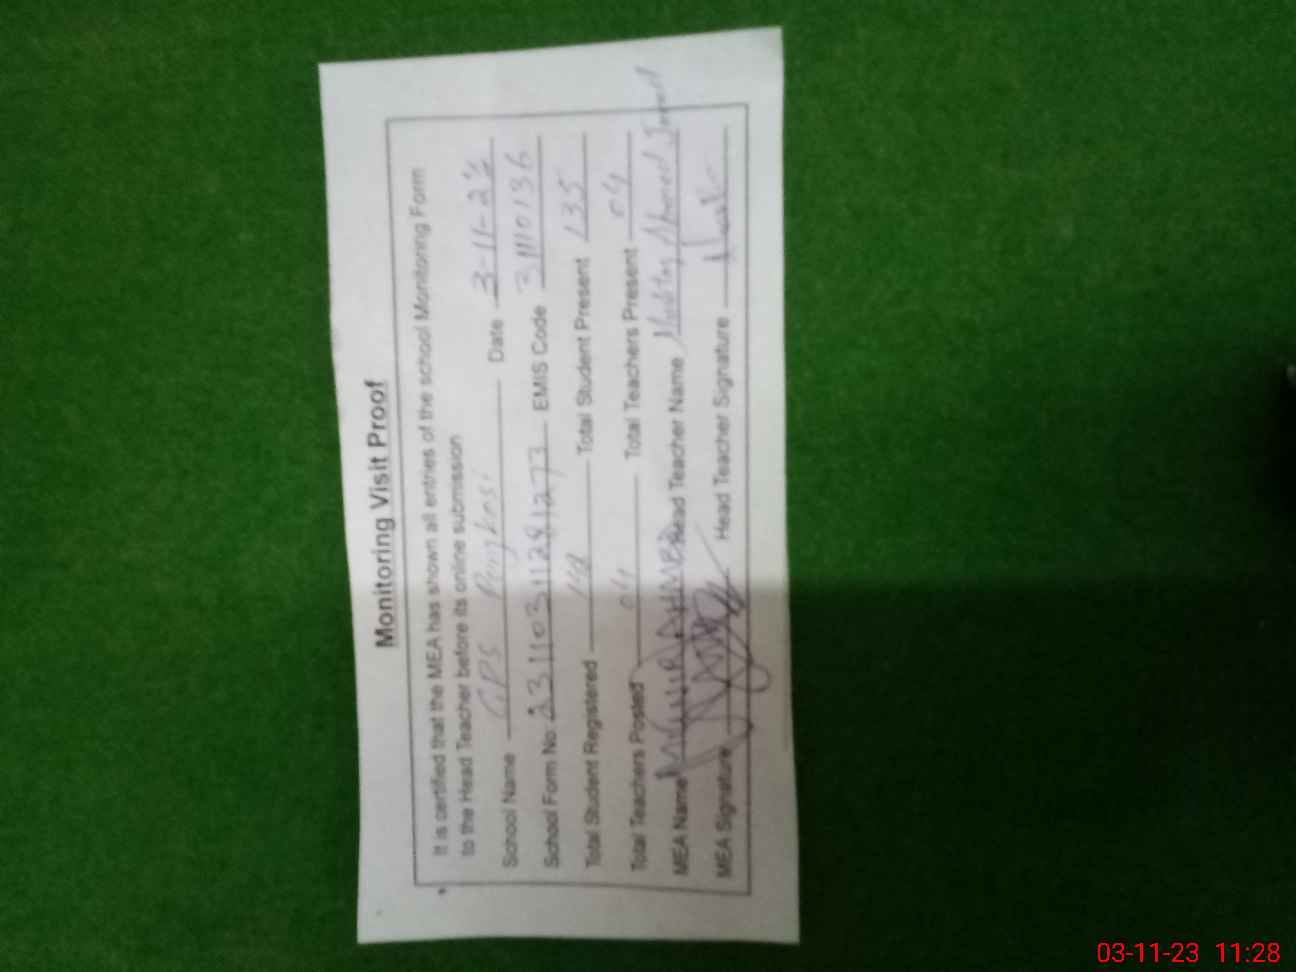 Monitoring Visit Proof
It is certified that the MEA has shown all entries of the school Monitoring Form
to the Head Teacher before its online submission
School Name GPS Date 3-11-23
School Form No. EMIS Code 31110136
Total Student Registered Total Student Present 135
Total Teachers Posted 04 Total Teachers Present 04
MEA Name AHMED Head Teacher Name Ahmed
MEA Signature Head Teacher Signature
03-11-23 11:28